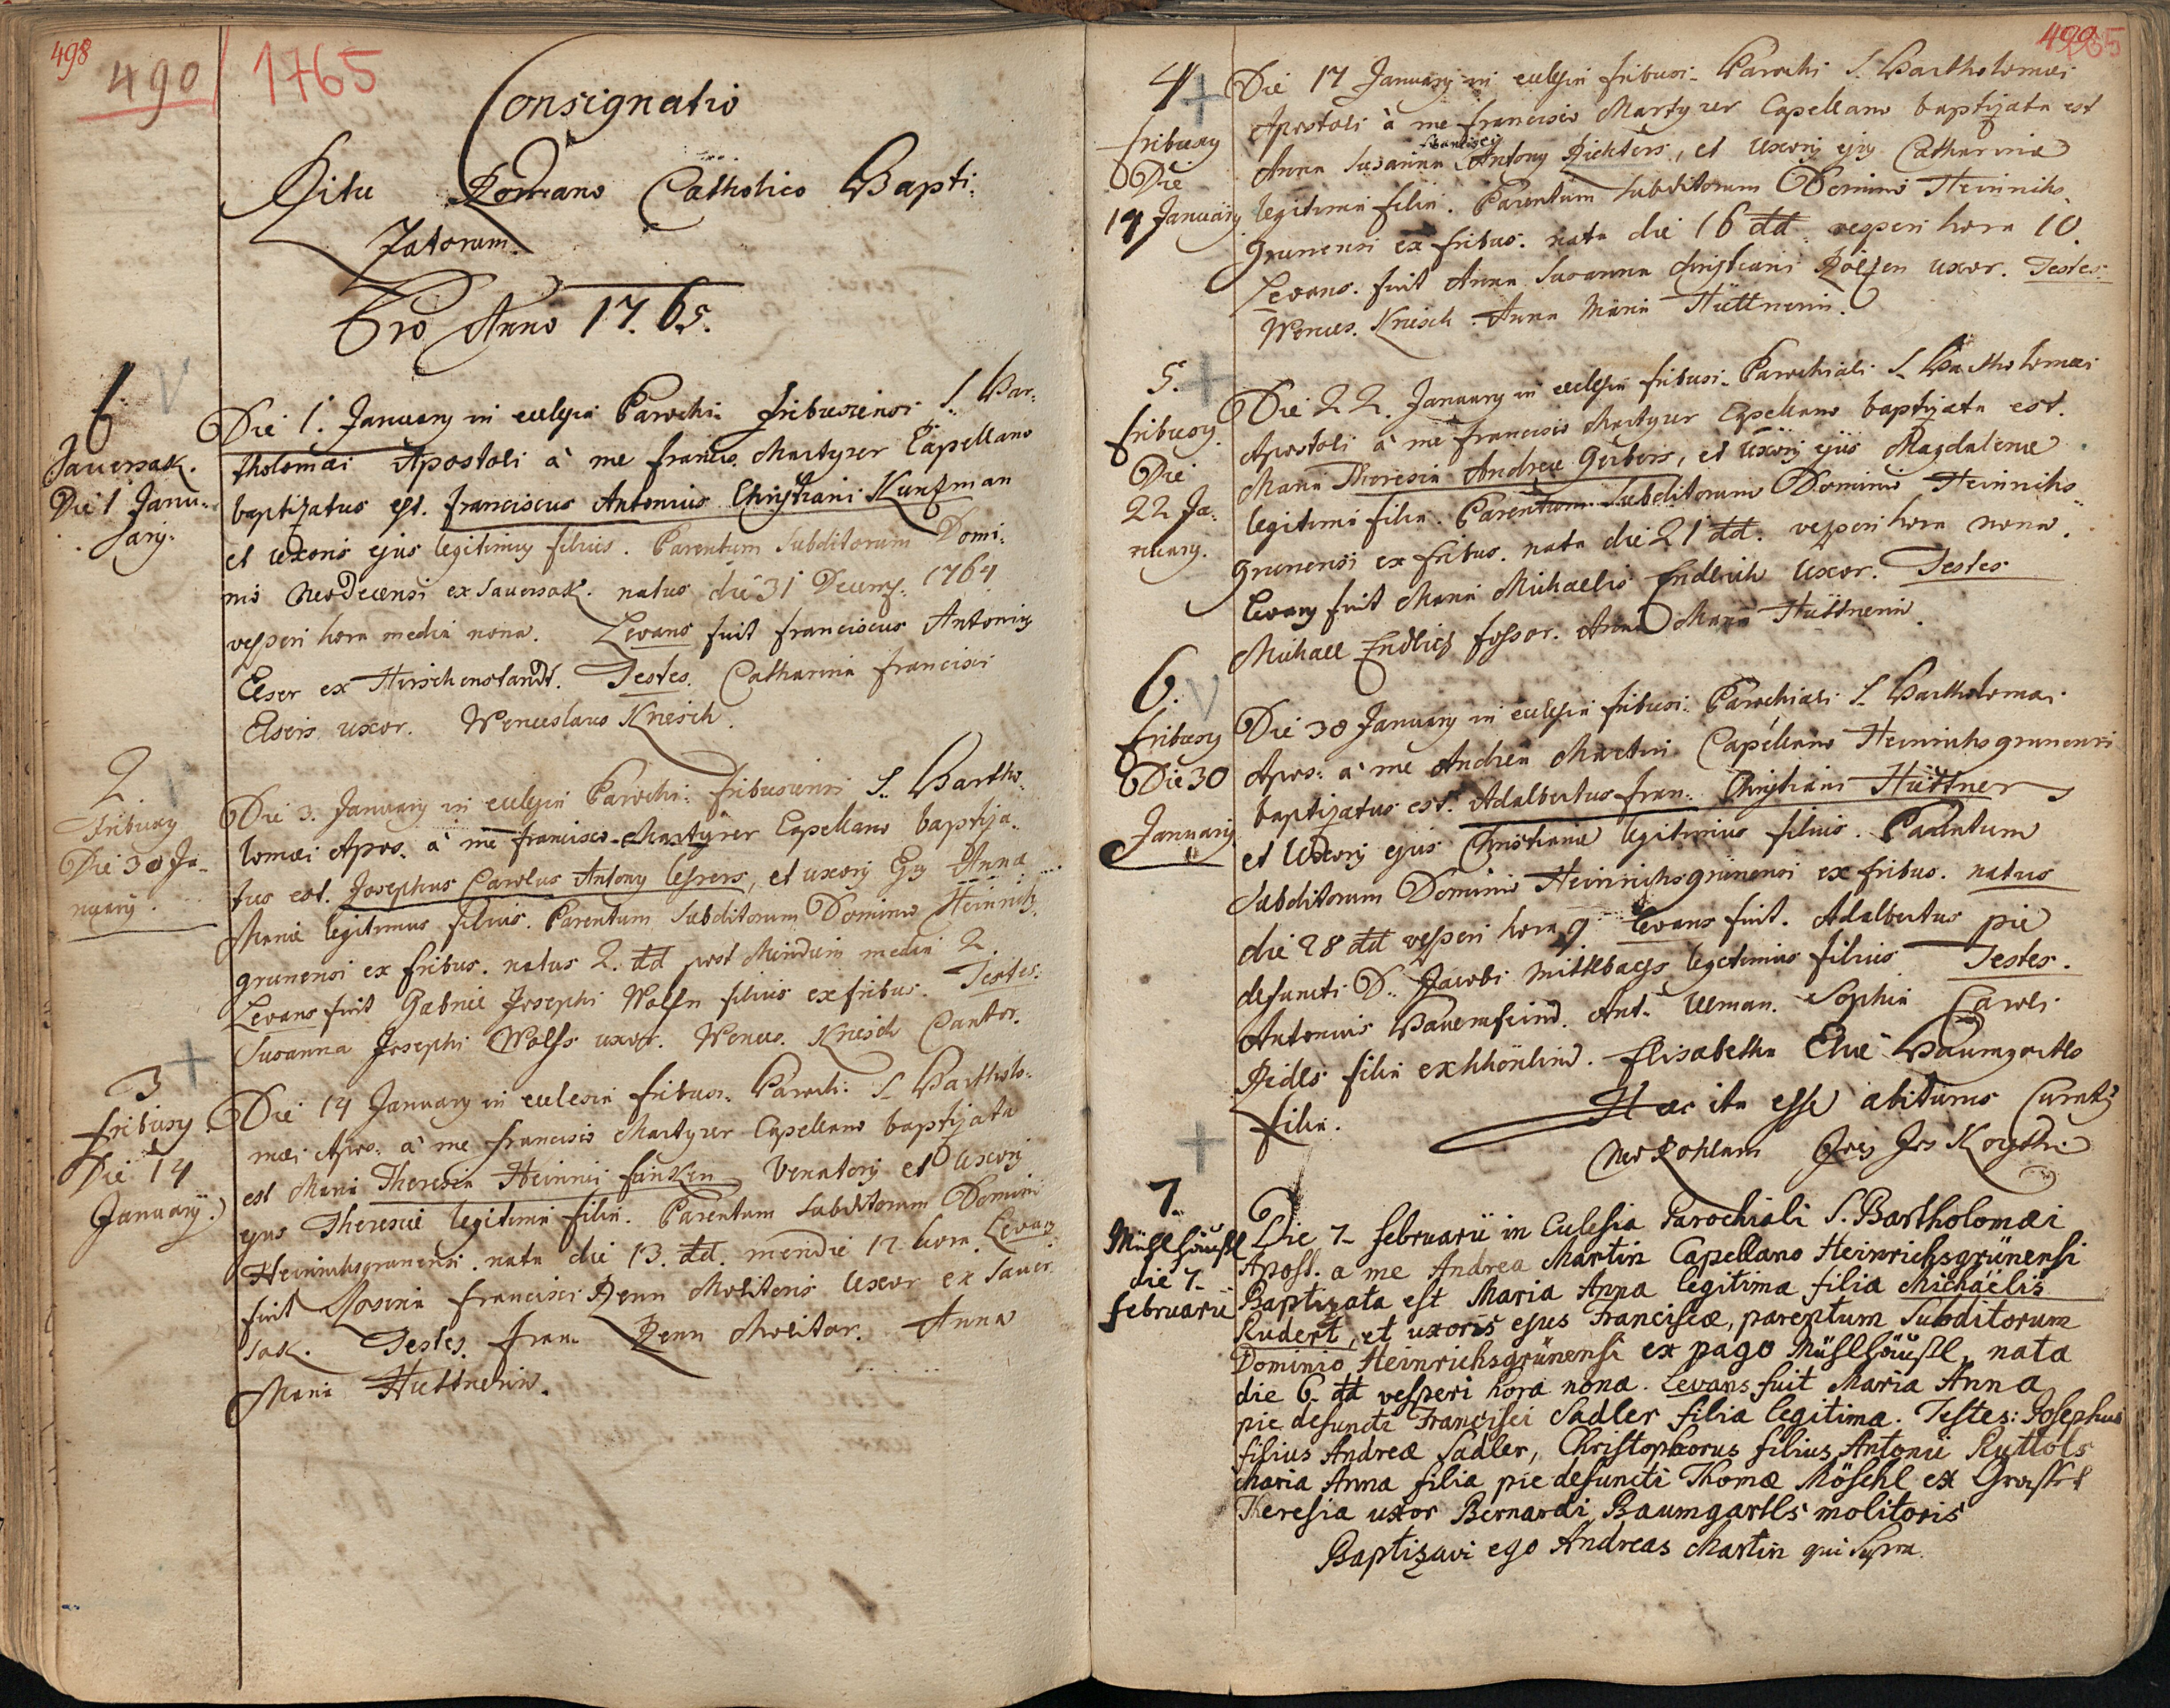 498
490
1765
Consignatio
Ritu Romano Catholico Bapti-
zatorum.
Pro Anno 17.65.
1.
Sauersak.
Die 1 Janu-
ary.
Die 1. January in ecclesia Parochi: fribusiensi S. Bar-
tholomæi Apostoli à me Francis. Martyrer Capellano
baptizatus est. Franciscus Antonius Christiani Kunzman
et uxoris ejus legitimus filius. Parentum Subditorum Domi-
nio Neodecensi ex Sauersak. natus die 31 Decemb. 1764
vesperi hora media nona. Levans fuit Franciscus Antonius
Elser ex Hirschenstandt. Testes. Catharina Francisci
Elseris uxor. Wenceslaus Kriesch.
2
Fribusy
Die 30 Ja-
nuary.
Die 3. January in ecclesia Parochi: fribusiensi S. Bartho-
lomæi Apos. à me Francisco Martyrer Capellano baptiza-
tus est. Josephus Carolus Antony Lesrers, et uxoris Ejus Anna
Mariæ legitimus filius. Parentum Subditorum Dominio Heinrichs-
grunensi ex fribus. natus 2. dd post Meridiem media 2.
Levans fuit Gabriel Josephi Wolfs filius ex fribus. Testes.
Susanna Josephi Wolfs uxor. Wences. Kriesch Cantor.
3
fribusy
Die 14
January.
Die 14 January in ecclesia fribus. Paroch: S. Bartholo-
mæi Apos. à me Francisco Martyrer Capellano baptizata
est Maria Theresia Heinrici funken Venatoris et Uxoris
ejus Theresiæ legitima filia. Parentum Subditorum Dominii
Heinrichsgrunensi. nata die 13. dd. meridie 12 hora. Levans
fuit Rosina Francisci Renn Molitoris Uxor ex Sauer-
sak. Testes. Fran. Renn Molitor. Anna
Maria Huttnerin.
499
4
fribusy
Die
17 January
Die 17 January in ecclesia fribusi- Parochi S. Bartholomæi
Apostoli à me Francisco Martyrer Capellano baptizata est
Francisci
Anna Susanna Antony Richters, et Uxoris ejus Catharinæ
legitima filia. Parentum Subditorum Dominio Heinrichs-
grunensi ex fribus. nata die 16 dd vesperi hora 10.
Levans. fuit Anna Susanna Christiani uxor. Testes:
Wences. Kriesch. Anna Maria Hüttnerin.
5.
fribusy.
Die
22 Ja-
nuary.
Die 22. January in ecclesia fribusi- Parochiali S. Bartholomæi
Apostoli à me Francisco Martyrer Capellano baptizata est.
Maria Theresia Andreæ Gerbers, et Uxoris ejus Magdalenæ
legitima filia. Parentum Subditorum Dominio Heinrichs-
grunensi ex fribus. nata die 21 dd. vesperi hora nona.
Levans fuit Maria Michaelis Endlich Uxor. Testes
Michael Endlich fossor. Anna Maria Hüttnerin.
6.
fribusy
Die 30
January
Die 30 January in ecclesia fribusi: Parochiali S. Bartholomæi
Apos: à me Andrea Martin Capellano Heinrichsgrunensi
baptizatus est. Adalbertus Fran: Christiani Hüttner
et Uxoris ejus Christianæ legitimus filius. Parentum
Subditorum Dominio Heinrichsgrünensi ex fribus. natus
die 28 dd vesperi hora 9 Levans fuit. Adalbertus pie
defuncti D. Jacobi Mittlbachs legitimus filius Testes.
Antonius Bauernfeind. Ant. Ulman. Sophia Caroli
Pidls filia ex Elisabetha Eliæ Baumgartls
filia.
Hæc ita esse
7.
Mühlhäusl
die 7.
februarii
Die 7. februarii in Eclesia Parochiali S. Bartholomæi
Apost. a me Andrea Martin Capellano Heinrichsgrünensi
Baptizata est Maria Anna legitima filia Michaëlis
Rudert, et uxoris ejus Franciscæ, parentum Subditorum
Dominio Heinrichsgrünensi ex pago Mühlhäusl, nata
die 6. dd vesperi hora nona. Levans fuit Maria Anna
pie defuncti Francisci Sadler filia legitima. Testes: Josephus
filius Andreæ Sadler, Christophorus filius Antonii Ruttols
Maria Anna filia pie defuncti Thomæ Möschl ex
Theresia uxor Bernardi Baumgartls molitoris
Baptizavi ego Andreas Martin qui Supra.